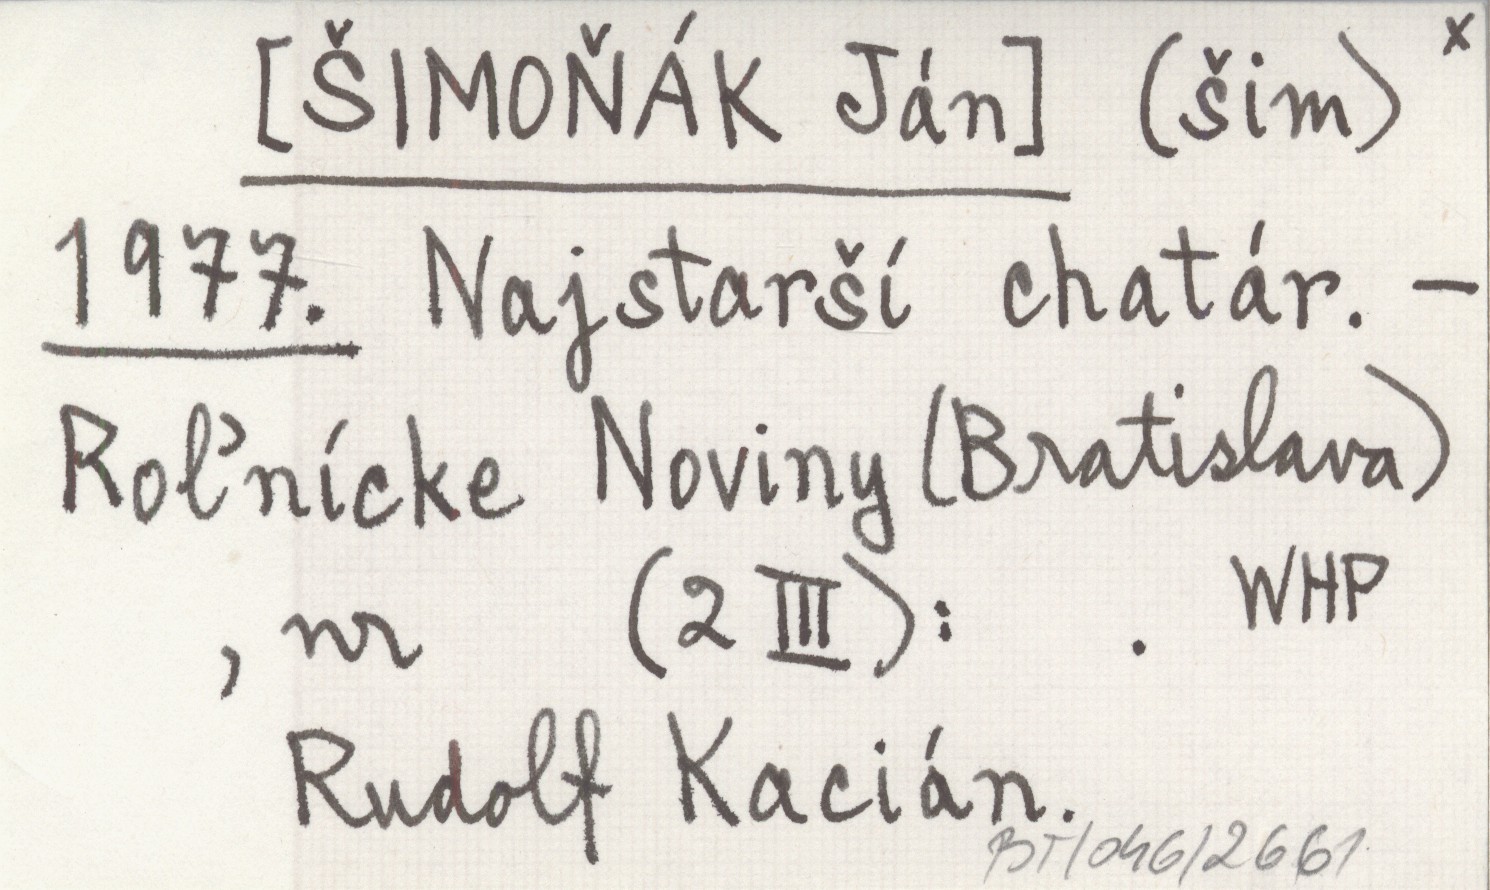 [ŠIMOŇÁK Ján] (šim) x
1977. Najstarší chatár. –
Roľnícke Noviny (Bratislava)
, nr (2 III): . WHP
Rudolf Kacián.
BT/046/2661